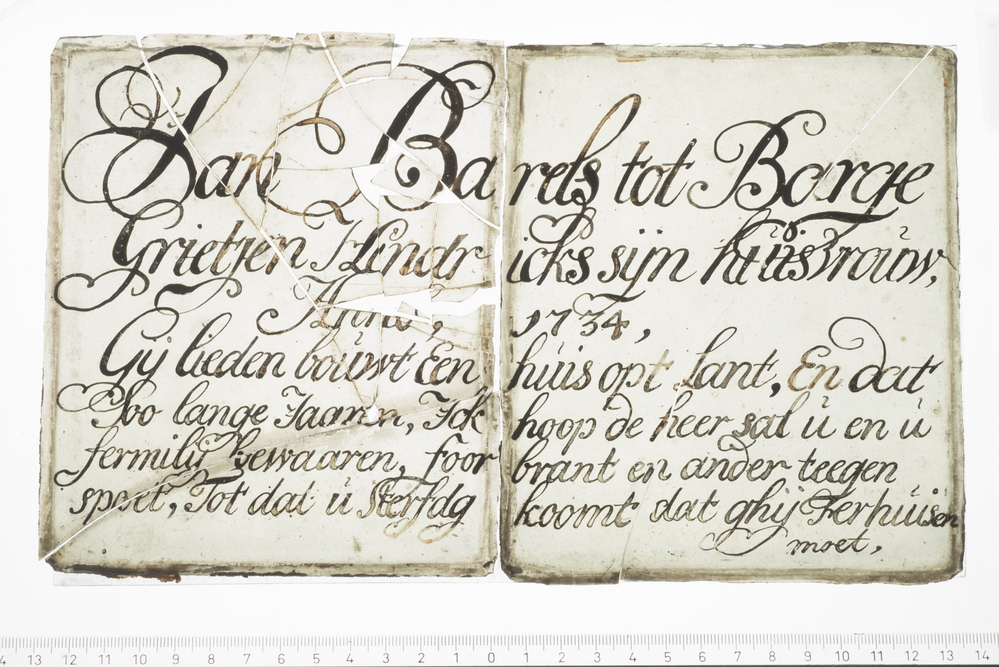 Jan Barels tot Barge
Grietjen Hendricks sijn huisvrouw,
Anno, 1734,
Gij lieden bouwt Een huis opt lant, En dat
Soo lange Jaaren, Ick hoop de heer sal u en u
fermilij bewaaren, foor brant en ander teegen
spoet, Tot dat u Sterfdg koomt dat ghij Ferhuisen
moet,
14 13 12 11 10 9 8 7 6 5 4 3 2 1 0 1 2 3 4 5 6 7 8 9 10 11 12 13 14